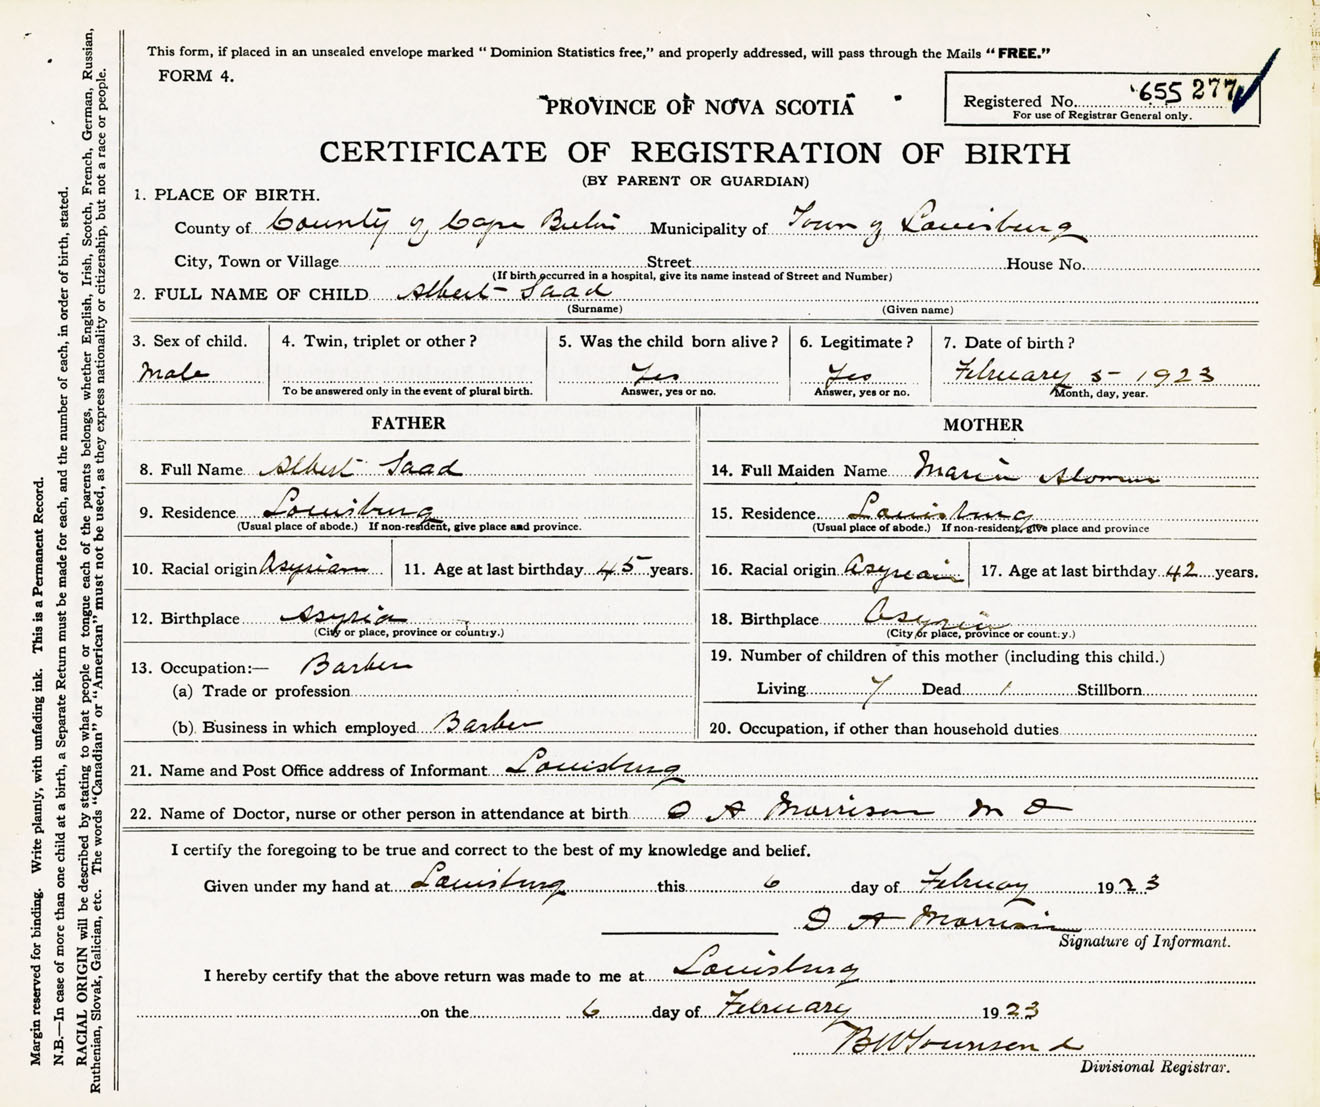 This form, if placed in an unsealed envelope marked " Dominion Statistics free," and properly addressed, will pass through the Mails " FREE."
FORM 4.
Registered No. 655 277
For use of Registrar General only.
PROVINCE OF NOVA SCOTIA
CERTIFICATE OF REGISTRATION OF BIRTH
(BY PARENT OR GUARDIAN)
1. PLACE OF BIRTH.
County of County of Cape Breton Municipality of Town of Louisburg
City, Town or Village Street House No.
(If birth occurred in a hospital, give its name instead of Street and Number)
2. FULL NAME OF CHILD Albert Saad
(Surname) (Given name)
3. Sex of child. 4. Twin, triplet or other ? 5. Was the child born alive ? 6. Legitimate ? 7. Date of birth ?
Male Yes Yes February 5 - 1923
To be answered only in the event of plural birth. Answer, yes or no. Answer, yes or no. Month, day, year.
FATHER MOTHER
8. Full Name Albert Saad 14. Full Maiden Name Maria
9. Residence Louisburg 15. Residence Louisburg
(Usual place of abode.) If non-resident, give place and province. (Usual place of abode.) If non-resident, give place and province
10. Racial origin Asyrian 11. Age at last birthday 45 years. 16. Racial origin Asyrian 17. Age at last birthday 42 years.
12. Birthplace Asyria 18. Birthplace Asyria
(City or place, province or country.) (City or place, province or country.)
13. Occupation:— Barber 19. Number of children of this mother (including this child.)
(a) Trade or profession Living 7 Dead 1 Stillborn
(b) Business in which employed Barber 20. Occupation, if other than household duties
21. Name and Post Office address of Informant Louisburg
22. Name of Doctor, nurse or other person in attendance at birth D A Morrison M D
I certify the foregoing to be true and correct to the best of my knowledge and belief.
Given under my hand at Louisburg this 6 day of February 1923
D A Morrison
Signature of Informant.
I hereby certify that the above return was made to me at Louisburg
on the 6 day of February 1923
B W Townsend
Divisional Registrar.
Margin reserved for binding. Write plainly, with unfading ink. This is a Permanent Record.
N.B.—In case of more than one child at a birth, a Separate Return must be made for each, and the number of each, in order of birth, stated.
RACIAL ORIGIN will be described by stating to what people or tongue each of the parents belongs, whether English, Irish, Scotch, French, German, Russian,
Ruthenian, Slovak, Galician, etc. The words "Canadian" or "American" must not be used, as they express nationality or citizenship, but not a race or people.